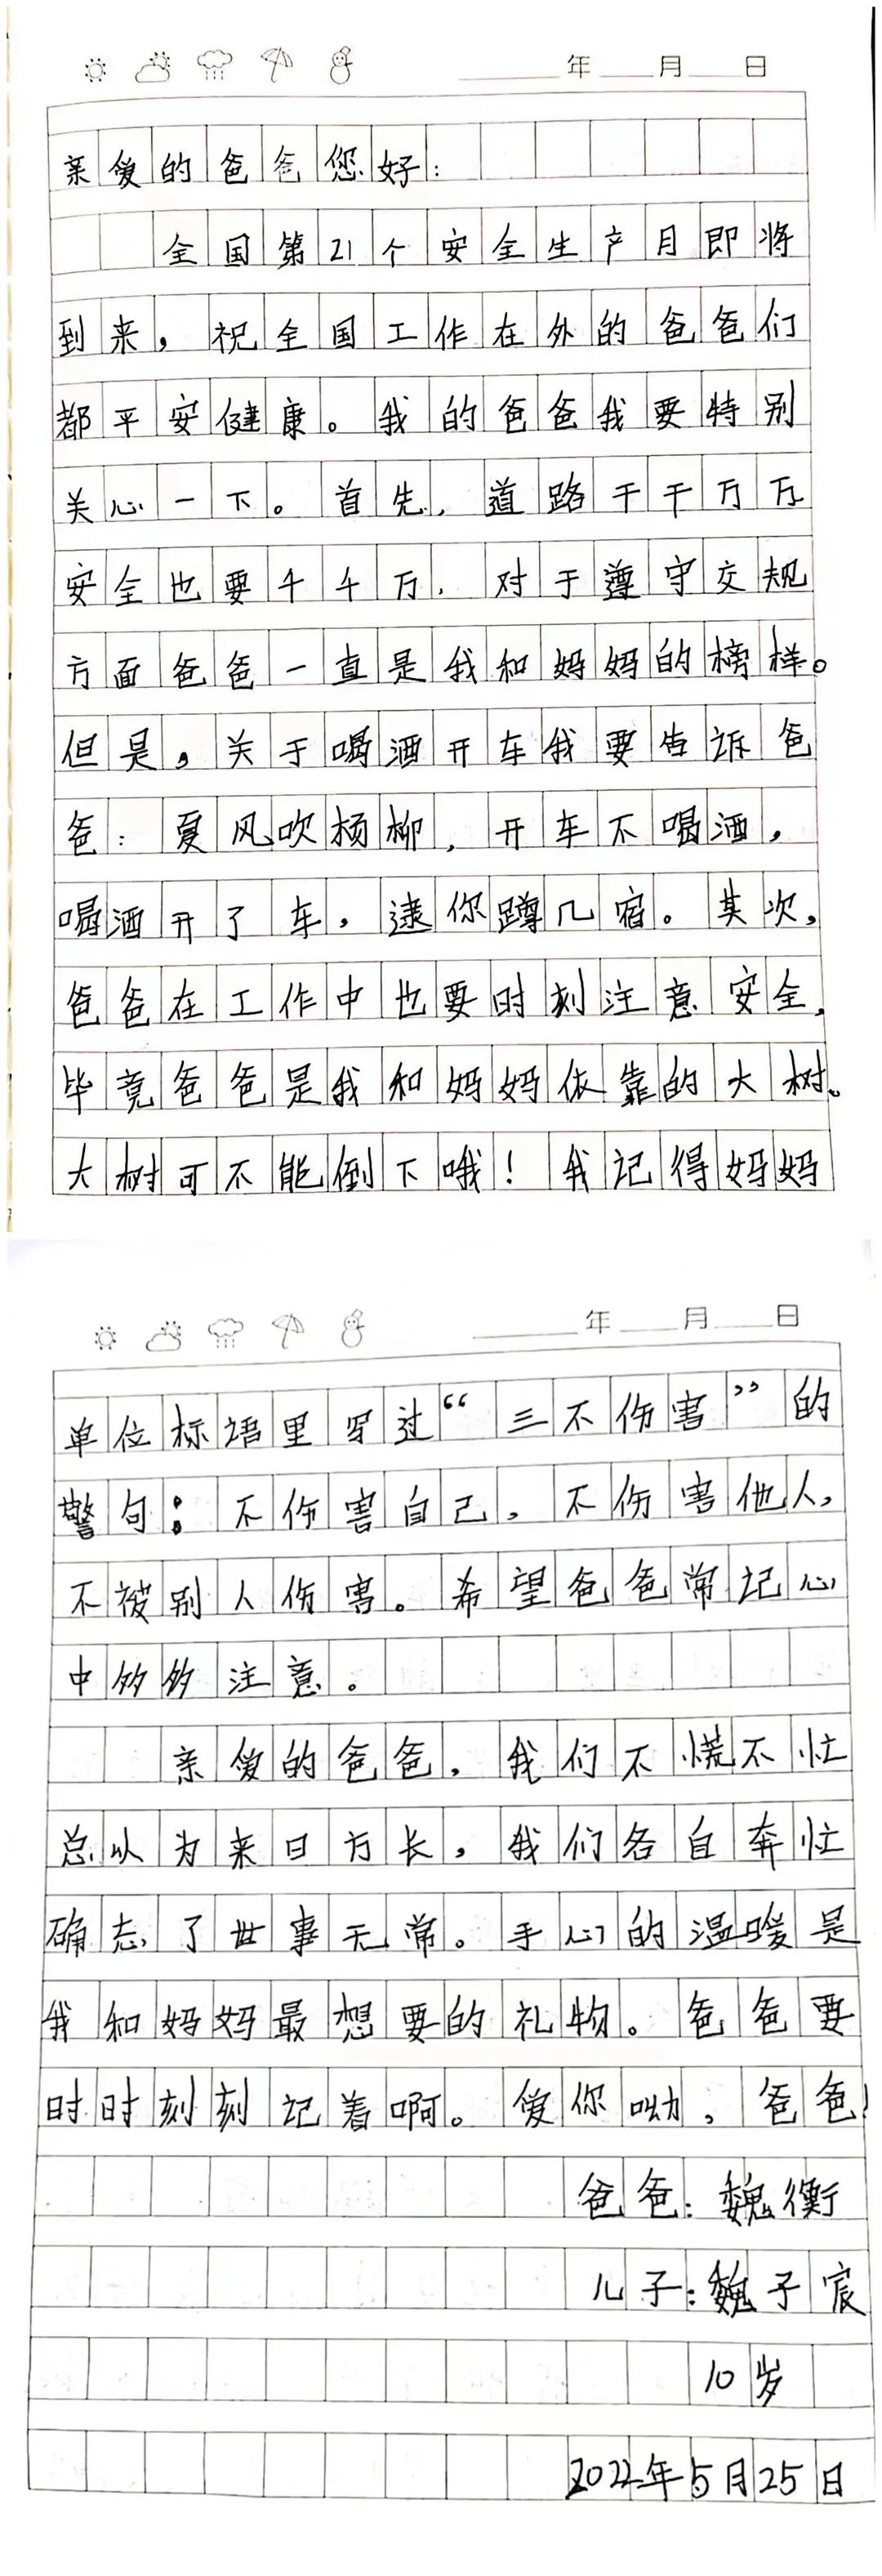 年 月 日
亲爱的爸爸您好：
全国第21个安全生产月即将
到来，祝全国工作在外的爸爸们
都平安健康。我的爸爸我要特别
关心一下。首先，道路千千万万
安全也要千千万，对于遵守交规
方面爸爸一直是我和妈妈的榜样。
但是，关于喝酒开车我要告诉爸
爸：夏风吹杨柳，开车不喝酒，
喝酒开了车，逮你蹲几宿。其次，
爸爸在工作中也要时刻注意安全，
毕竟爸爸是我和妈妈依靠的大树。
大树可不能倒下哦！我记得妈妈
年 月 日
单位标语里写过“三不伤害”的
警句：不伤害自己，不伤害他人，
不被别人伤害。希望爸爸常记心
中多多注意。
亲爱的爸爸，我们不慌不忙
总以为来日方长，我们各自奔忙
确忘了世事无常。手心的温暖是
我和妈妈最想要的礼物。爸爸要
时时刻刻记着啊。爱你呦，爸爸！
爸爸：魏衡
儿子：魏子宸
10岁
2022年5月25日